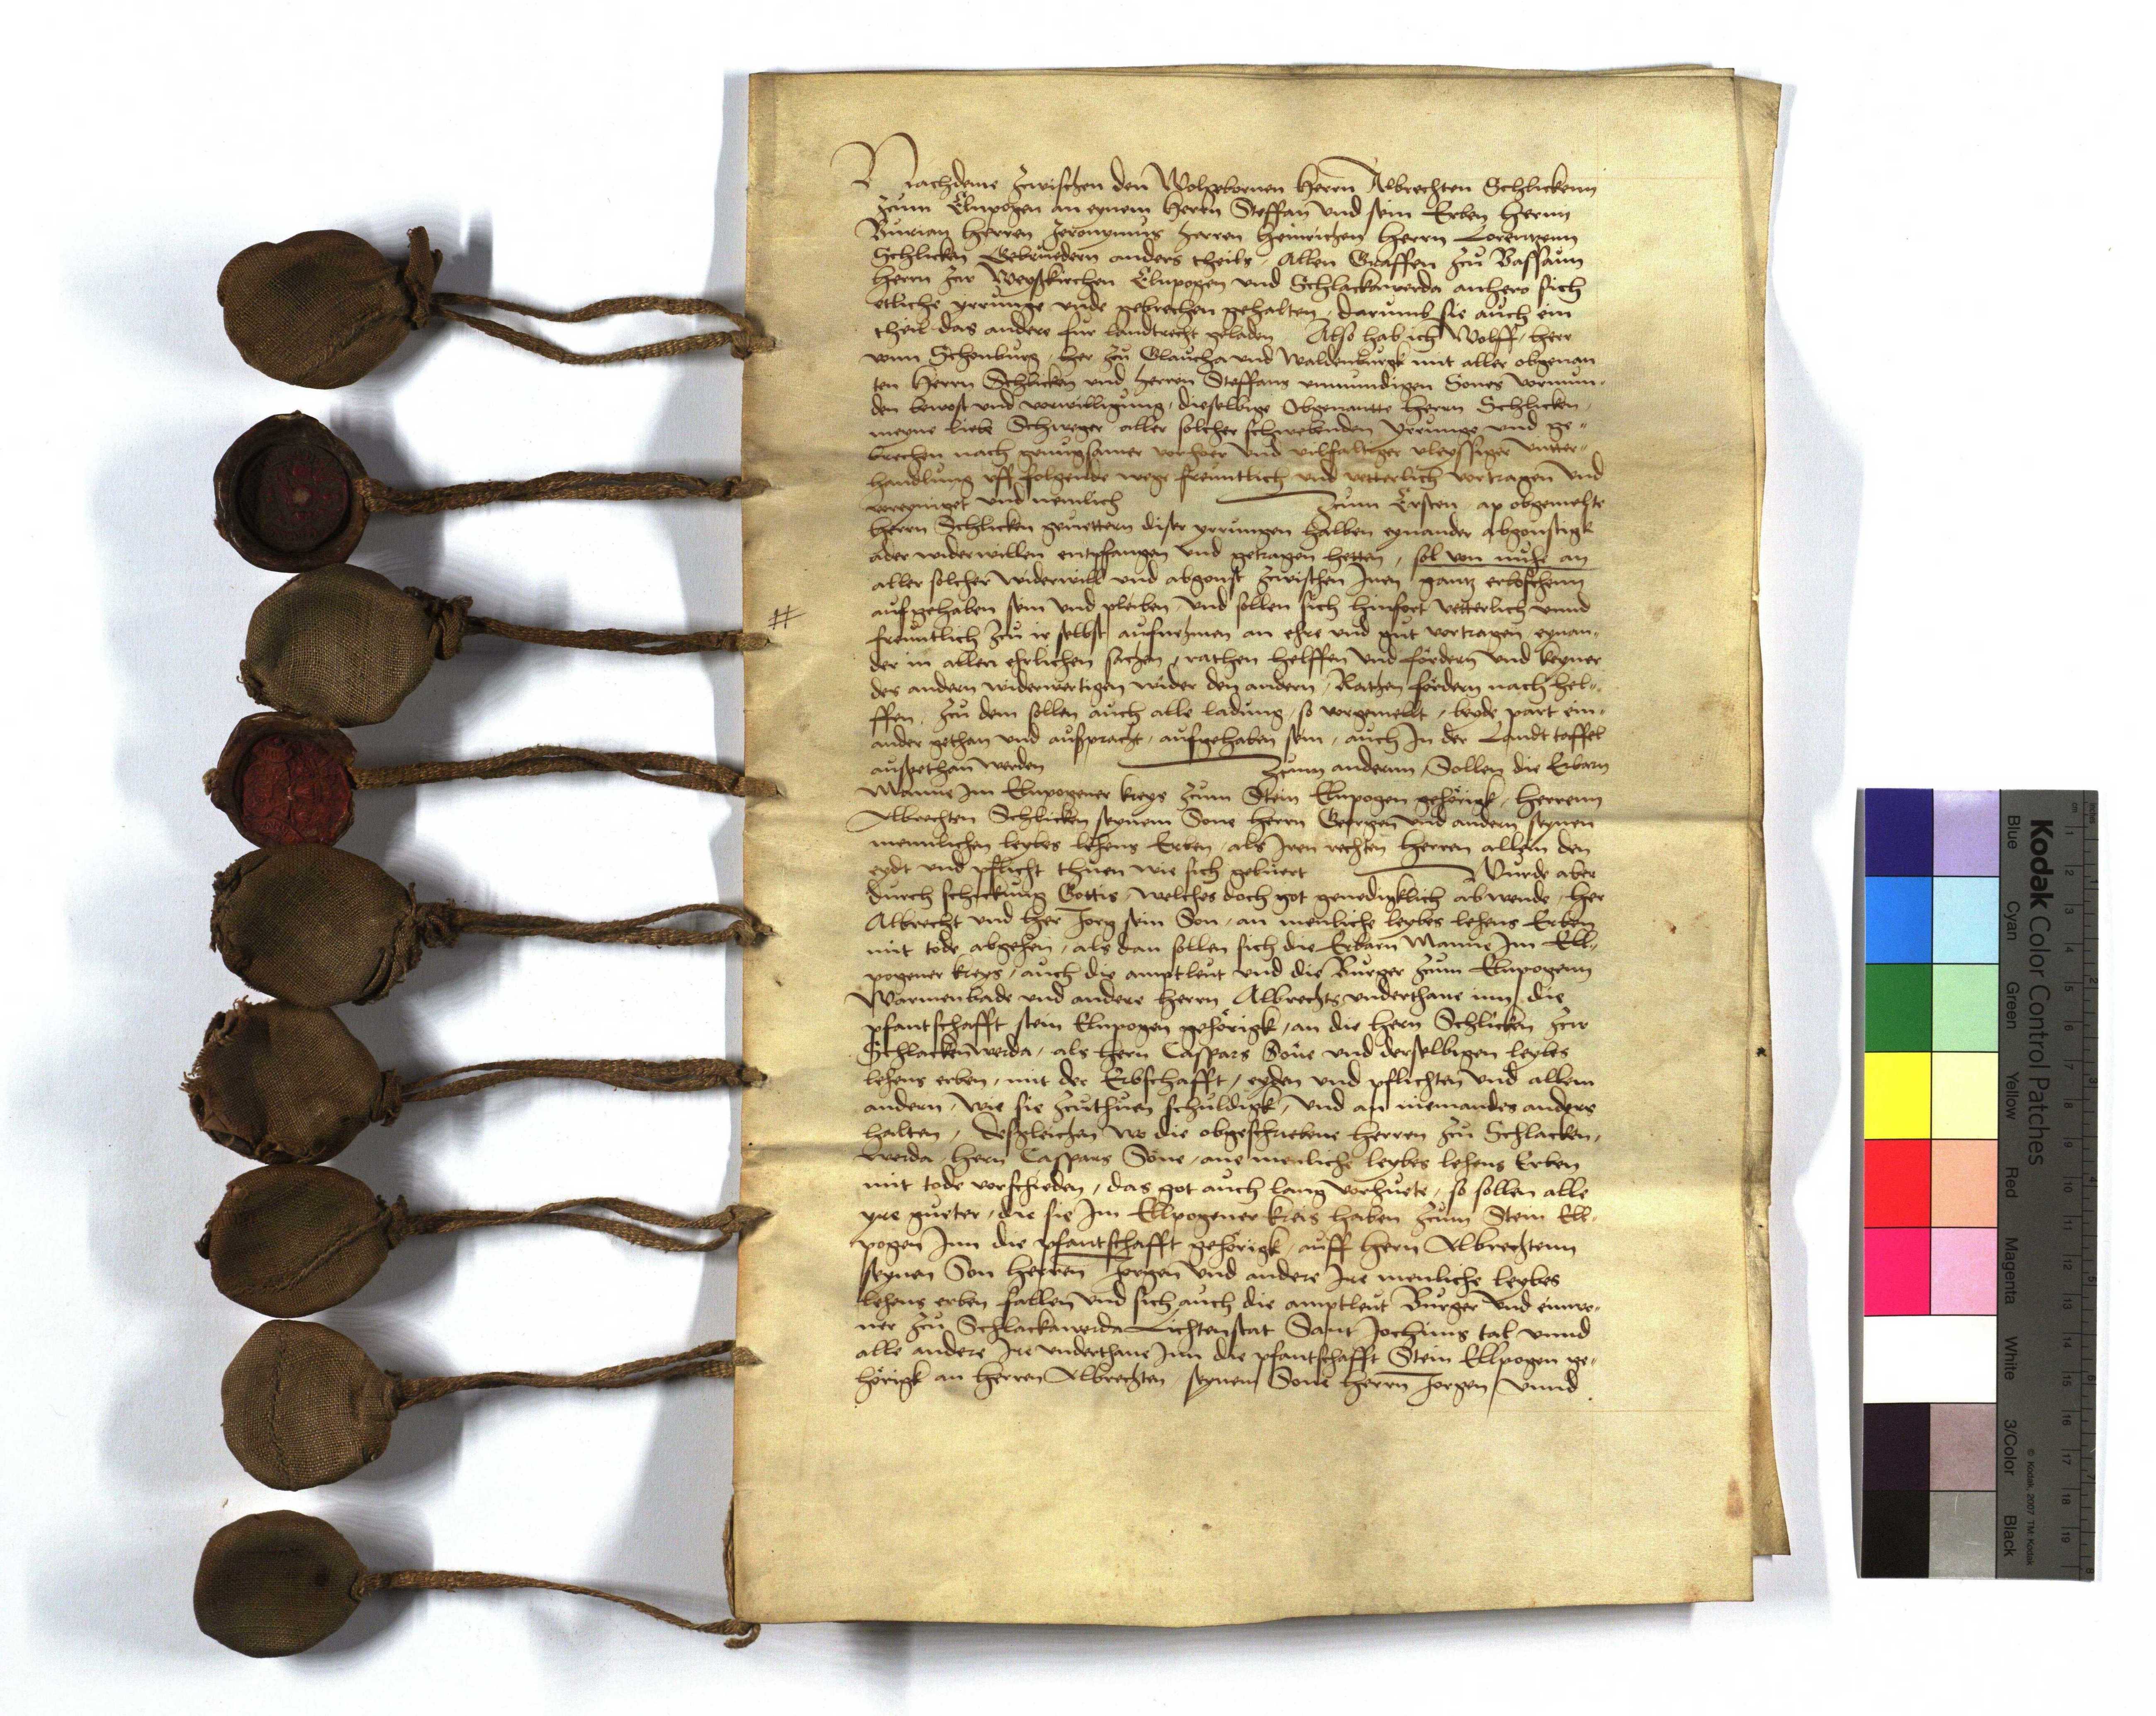 Nachdeme zcwischen den Wolgebornen Herrn Albrechten Schlickenn
zcum Elnpogen an eynem Herrn Steffan und sein Erben Herrnn
Burian Herren Jeronymus Herren Heinrichen Herrn Lorentzenn
Schlicken Gebruedern anders theils, Allen Graffen zcu Bassaun
Herrn zcw Weysskirchen Elnpogen und Schlackawerda anhero sich
etliche yrrunge unde gebrechen gehalten, darumb sie auch ein
theil das andere fur landtrecht geladen Also hab ich Wolff, herr
vonn Schonburg, her zcu Glaucha und Waldenburgk mit aller obgenan
ten Herrn Schlicken und herren Steffans unmundigen Sones vormun-
den bewost und vorwilligung, dieselbige Obgenantte Herrn Schlicken,
meyne liebe Schweger aller solcher schwebenden Yrrunge und ge-
brechen nach genugsamer vorhoer und vilfaltiger vleyssiger unter-
handlung uff folgende wege freuntlich und vetterlich vortragen und
voreyniget und nemlich Zcum Ersten ap obgemelte
Herrn Schlicken gevettern diser yrrungen halben eynander abgonstigk
ader widerwillen entpfangen und getragen hetten, sol von nuhe an
aller solcher widerwill und abgonst zcwischen Inen gantz erloschenn
aufgehaben sein und pleiben, und sollen sich hinfort vetterlich unnd
freuntlich zcu ir selbst aufnehmen an ehre und gut vortragen, eynan-
der in allen ehrlichen sachen, rathen helffen und fordern und keyner
des andern widerwertigen wider den andern, Rathen fordern nach hel-
ffen, zcu dem sollen auch alle ladung, so vorgemellt, beyde part ein-
ander gethan und aussprache, aufgehaben sein, auch In der Landt taffel
aussgethan werden Zcum andernn, Sollen die Erbarn
Manne Im Elnpogener kreys zcum Stein Elnpogen gehörigk, Herrenn
Albrechten Schlicken seynem Sone Herrn Georgen und andern seynen
mennlichen leybes lehens Erben, als Iren rechten Herren allein den
eydt und pflicht thuen wie sich geburt Wurde aber
durch schickung Gottis, welches doch got genediglich abwende, her
Albrecht und her Jorg sein Son, an menliche leybes lehens Erben
mit tode abgehen, als dan sollen sich die Erbarn Manne Im Ell-
pogener kreys, auch die amptleut und die Burger zcum Elnpogenn
Warmenbade und andere herrn Albrechts underthane inn die
pfantschafft stein Elnpogen gehörigk, an die hern Schlicken zcw
Schlackenwerda, als hern Caspars Söne und derselbigen leybes
lehens erben, mit der Erbschafft, eyden und pflichten und allem
andern, wie sie zcuthuen schuldigk, und an niemandes anders
halten, Dessgleichen wo die obgeschriebene herren zcu Schlacken-
werda, hern Caspars Söne, ane menliche leybes lehens Erben
mit tode vorschieden, das got auch lang vorhuete, so sollen alle
yre gueter, die sie Im Ellpogener kreis haben zcum Stein Ell-
pogen Inn die pfantschafft gehörigk, auff hern Albrechtenn
seynen Son herren Jorgen und andere Ire menliche leybes
lehens erben fallen und sich auch die amptleut Burger und einwo-
ner zcu Schlackawerda Lichtenstat Sant Jochims tal unnd
alle andere Ire underthane Inn die pfantschafft Stein Ellpogen ge-
hörigk an herren Albrechten seynem Sone herrn Jorgen, unnd